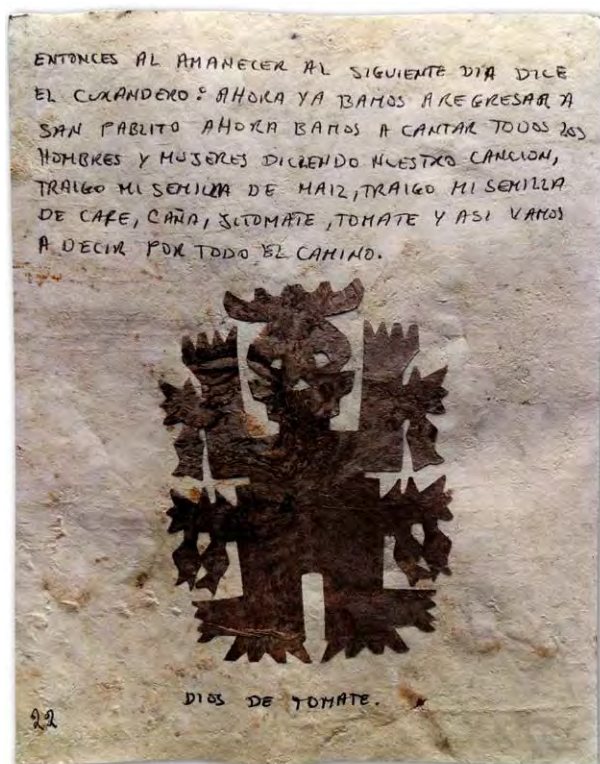 ENTONCES AL AMANECER AL SIGUIENTE DIA DICE
EL CURANDERO: AHORA YA BAMOS A REGRESAR A
SAN PABLITO AHORA BAMOS A CANTAR TODOS LOS
HOMBRES Y MUJERES DICIENDO NUESTRO CANCION,
TRAIGO MI SEMILLA DE MAIZ, TRAIGO MI SEMILLA
DE CAFE, CAÑA, JITOMATE, TOMATE Y ASI VAMOS
A DECIR POR TODO EL CAMINO.
DIOS DE TOMATE.
22